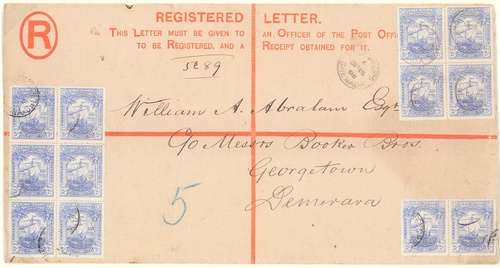 R
REGISTERED LETTER.
THIS LETTER MUST BE GIVEN TO AN OFFICER OF THE POST OFFI
TO BE REGISTERED, AND A RECEIPT OBTAINED FOR IT.
89
William A. Abraham Esqr
C/o Messrs Booker Bros.
Georgetown
Demerara
5